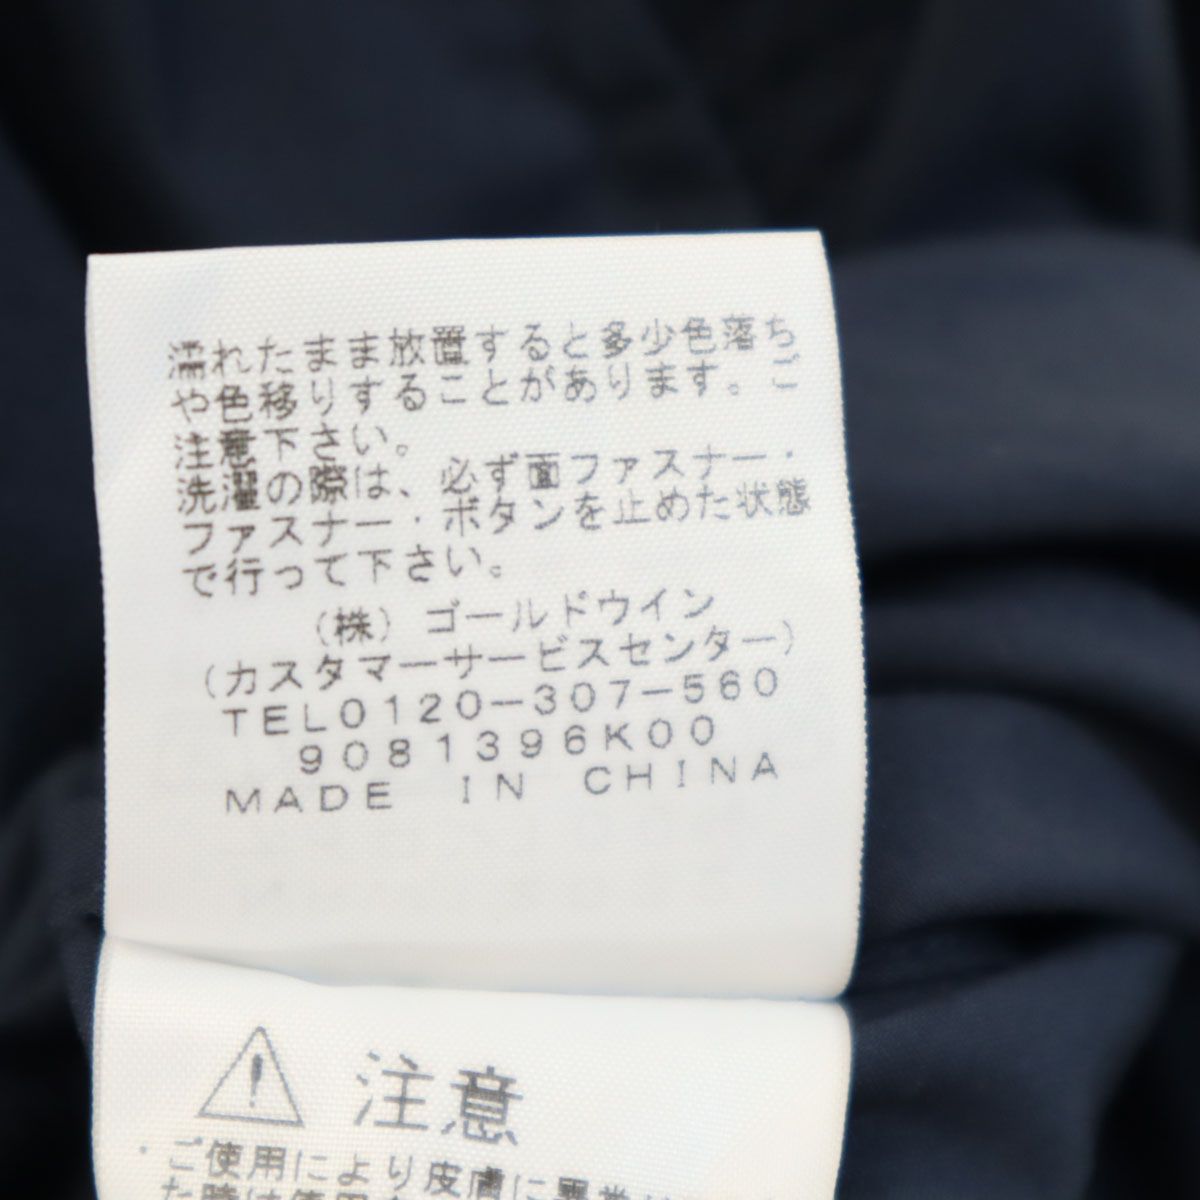 濡れたまま放置すると多少色落ち
や色移りすることがあります。ご
注意下さい。
洗濯の際は、必ず面ファスナー・
ファスナー・ボタンを止めた状態
で行って下さい。
(株) ゴールドウイン
(カスタマーサービスセンター)
TEL0120-307-560
9081396K00
MADE IN CHINA
注意
・ご使用により皮膚に異常
た時は使用